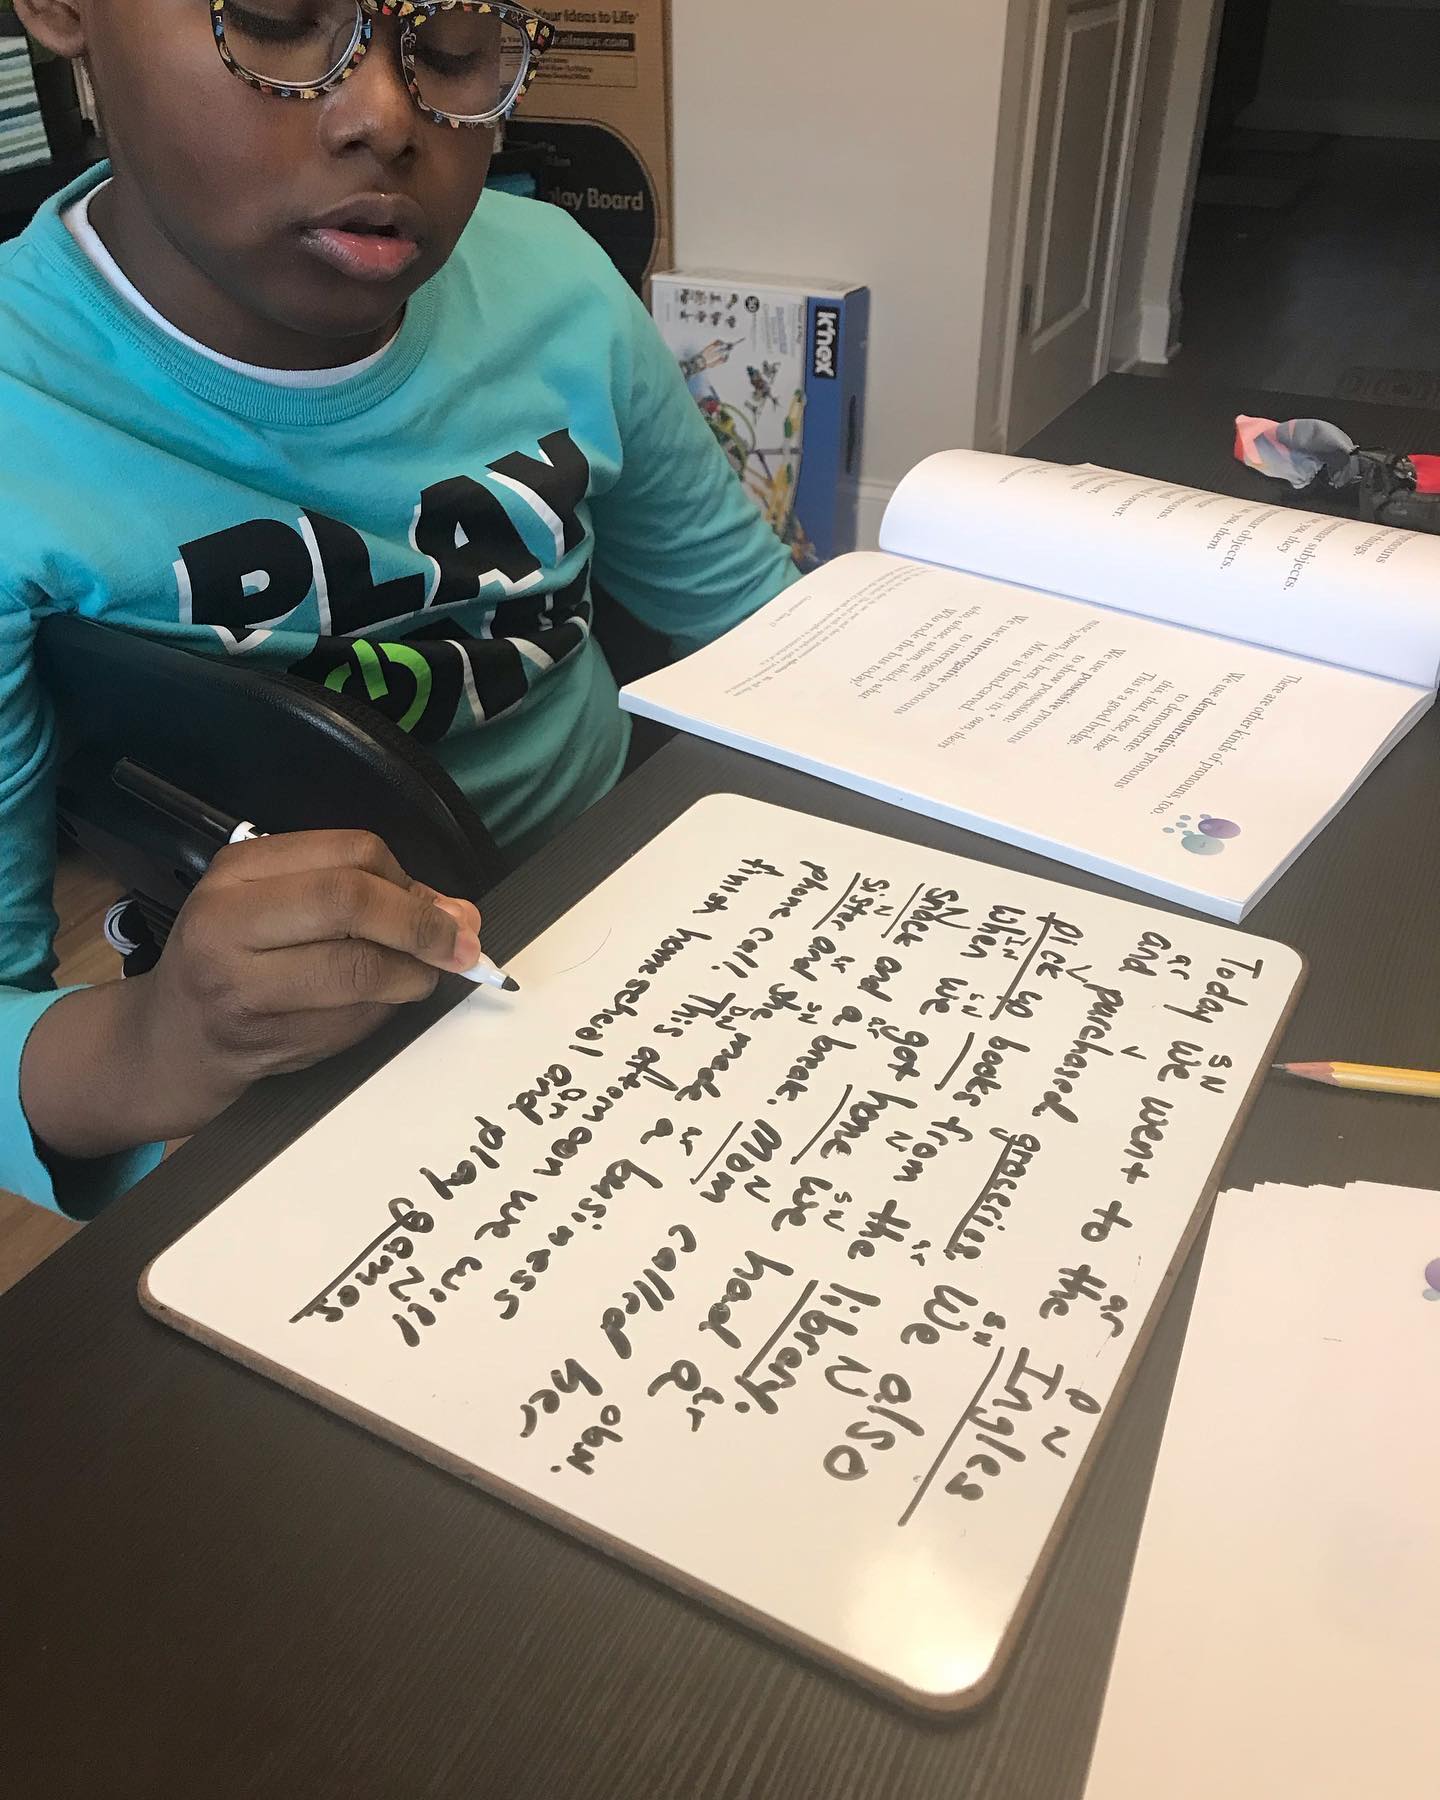 Your Ideas to Life
elmers.com
play Board
K'nex
PLAY
SN ar PN
Today we went to the Ingles
ar V SN
and purchased groceries. We also
V ar N
pick up books from the library.
IN SN N SN ar
when we got home we had a
N ar N obN.
snack and a break. Mom called her
N ar SN ar
sister and she made a business
DN
phone call. This afternoon we will
ar N
finish homeschool and play games
There are other kinds of pronouns, too.
We use demonstrative pronouns
to demonstrate:
this, that, these, those
This is a good bridge.
We use possessive pronouns
to show possession:
mine, yours, his, hers, theirs, its, ours, theirs
Mine is hand-carved.
We use interrogative pronouns
to interrogate:
who, whose, whom, which, what
Who rode the bus today?